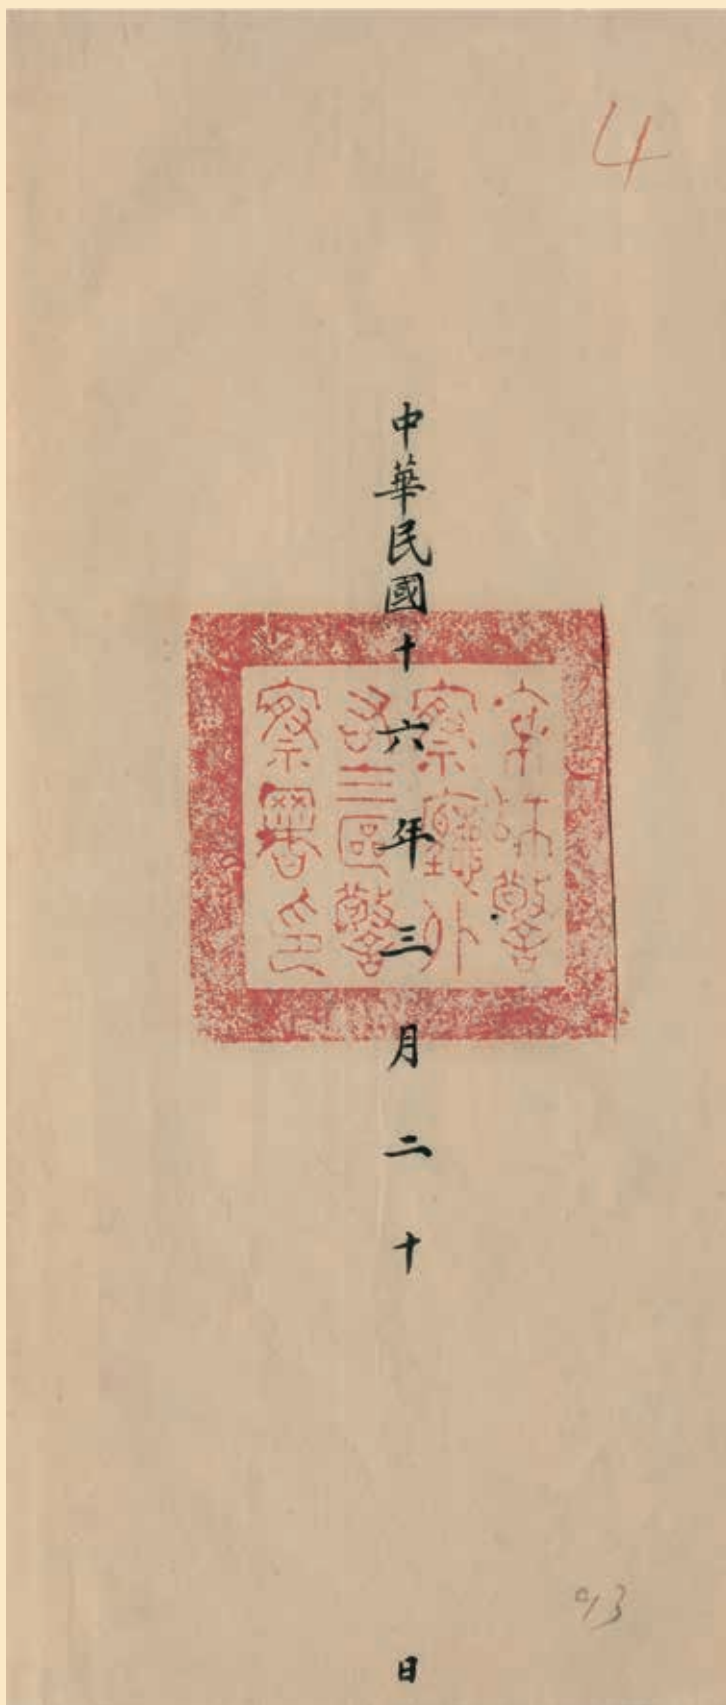 4
中華民國十六年三月二十 日
京師警
察廳外
右三區警
察署印